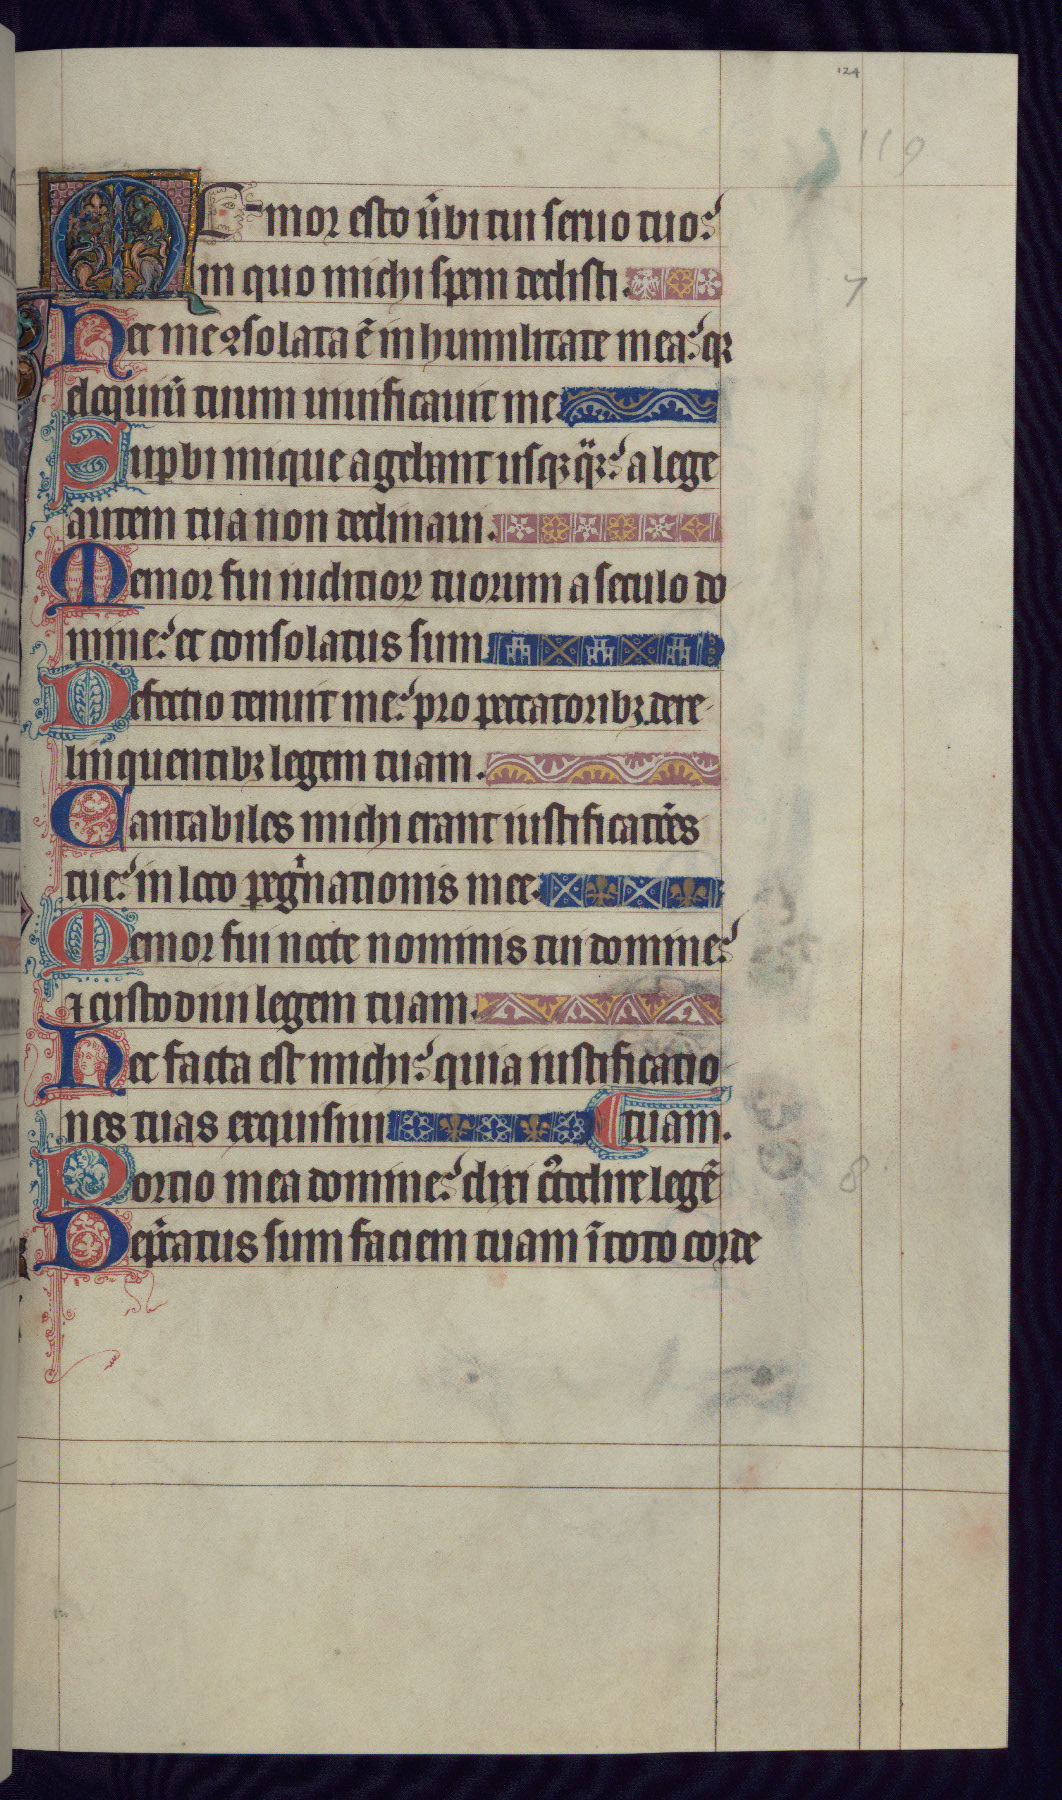 124
119
MEmor esto ũbi tui seruo tuo:
in quo michi spem dedisti.
7
Hec me ꝯsolata ẽ in humilitate mea: qꝛ
eloquiũ tuum uiuificauit me
Supbi inique agebant usqꝫ qͣqꝫ: a lege
autem tua non declinaui.
Memor fui iudicioꝝ tuorum a seculo do
mine: et consolatus sum
Defectio tenuit me: pro peccatoribꝫ dere-
linquentibꝫ legem tuam.
Cantabiles michi erant iustificatiões
tue: in loco peg̾nationis mee.
Memor fui nocte nominis tui domine:
⁊ custodiui legem tuam.
Hec facta est michi: quia iustificatio
nes tuas exquisiui
tuam.
Portio mea domine: dixi custodire legẽ
8
Dep̾catus sum faciem tuam ĩ toto corde